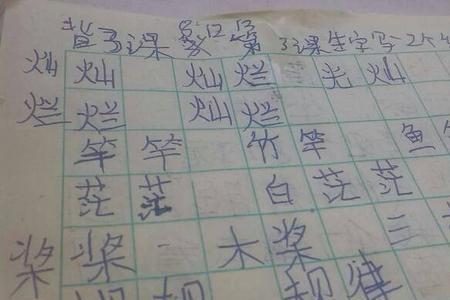 背3课 家12第3课生字写2个
灿 灿 灿 烂 光 灿
烂 烂 灿 烂
竿 竿 竹 竿 鱼
茫 茫 白 茫 茫
桨 桨 木 桨 三
规